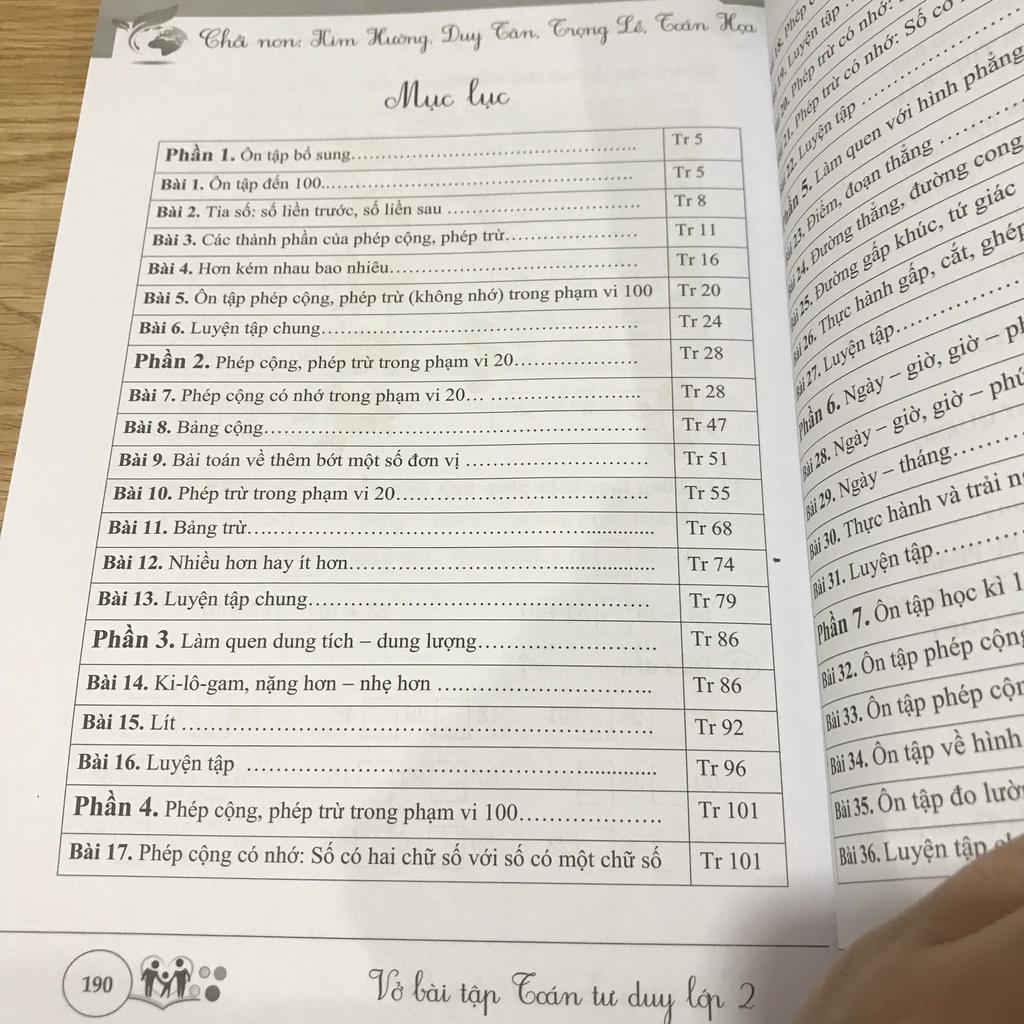 Chồi non: Kim Hường, Duy Tân, Trọng Lê, Toán Họa
Mục lục
Phần 1. Ôn tập bổ sung............ Tr 5
Bài 1. Ôn tập đến 100............ Tr 5
Bài 2. Tia số: số liền trước, số liền sau ............ Tr 8
Bài 3. Các thành phần của phép cộng, phép trừ............ Tr 11
Bài 4. Hơn kém nhau bao nhiêu............ Tr 16
Bài 5. Ôn tập phép cộng, phép trừ (không nhớ) trong phạm vi 100 Tr 20
Bài 6. Luyện tập chung............ Tr 24
Phần 2. Phép cộng, phép trừ trong phạm vi 20............ Tr 28
Bài 7. Phép cộng có nhớ trong phạm vi 20............ Tr 28
Bài 8. Bảng cộng............ Tr 47
Bài 9. Bài toán về thêm bớt một số đơn vị ............ Tr 51
Bài 10. Phép trừ trong phạm vi 20............ Tr 55
Bài 11. Bảng trừ............ Tr 68
Bài 12. Nhiều hơn hay ít hơn............ Tr 74
Bài 13. Luyện tập chung............ Tr 79
Phần 3. Làm quen dung tích – dung lượng............ Tr 86
Bài 14. Ki-lô-gam, nặng hơn – nhẹ hơn ............ Tr 86
Bài 15. Lít ............ Tr 92
Bài 16. Luyện tập ............ Tr 96
Phần 4. Phép cộng, phép trừ trong phạm vi 100............ Tr 101
Bài 17. Phép cộng có nhớ: Số có hai chữ số với số có một chữ số Tr 101
190
Vở bài tập Toán tư duy lớp 2
18. Phép
19. Luyện tập
20. Phép trừ có nhớ:
21. Phép trừ có nhớ: Số có
22. Luyện tập ............
Phần 5. Làm quen với hình phẳng
Bài 23. Điểm, đoạn thẳng ............
Bài 24. Đường thẳng, đường cong
Bài 25. Đường gấp khúc, tứ giác
Bài 26. Thực hành gấp, cắt, ghép
Bài 27. Luyện tập............
Phần 6. Ngày – giờ, giờ –
Bài 28. Ngày – giờ, giờ – phú
Bài 29. Ngày – tháng............
Bài 30. Thực hành và trải
Bài 31. Luyện tập............
Phần 7. Ôn tập học kì 1
Bài 32. Ôn tập phép cộng
Bài 33. Ôn tập phép
Bài 34. Ôn tập về hình
Bài 35. Ôn tập đo
Bài 36. Luyện tập